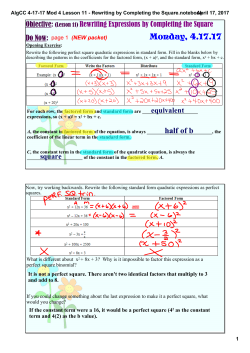 AlgCC 4-17-17 Mod 4 Lesson 11 - Rewriting by Completing the Square.notebook April 17, 2017
Objective: (Lesson 11) Rewriting Expressions by Completing the Square
Do Now: page 1 (NEW packet) Monday, 4.17.17
Opening Exercise:
Rewrite the following perfect square quadratic expressions in standard form. Fill in the blanks below by
describing the patterns in the coefficients for the factored form, (x + a)², and the standard form, x² + bx + c.
Factored Form Write the Factors Distribute Standard Form
Example: (x
(x+3)(x+3)
(x+5)(x+5) x²+5x+5x+25
(x + 20)²
For each row, the factored and standard form are equivalent
expressions, so (x + a)² = x² + bx + c.
A, the constant in factored form of the equation, is always half of b , the
coefficient of the linear term in the standard form.
C, the constant term in the standard form of the quadratic equation, is always the
square of the constant in the factored form, A.
Now, try working backwards. Rewrite the following standard form quadratic expressions as perfect
squares.
perf SQ trin
Standard Form Factored Form
x² + 12x + 36 =(x+6)(x+6) (x+6)²
x² − 12x + 36 =(x-6)(x-6) (x-6)²
x² + 20x + 100 (x+10)²
x² + 100x + 2500 (x+50)²
x² + 8x + 3
What is different about x² + 8x + 3? Why is it impossible to factor this expression as a
perfect square binomial?
It is not a perfect square. There aren't two identical factors that multiply to 3
and add to 8.
If you could change something about the last expression to make it a perfect square, what
would you change?
If the constant term were a 16, it would be a perfect square (4² as the constant
term and 4(2) as the b value).
1